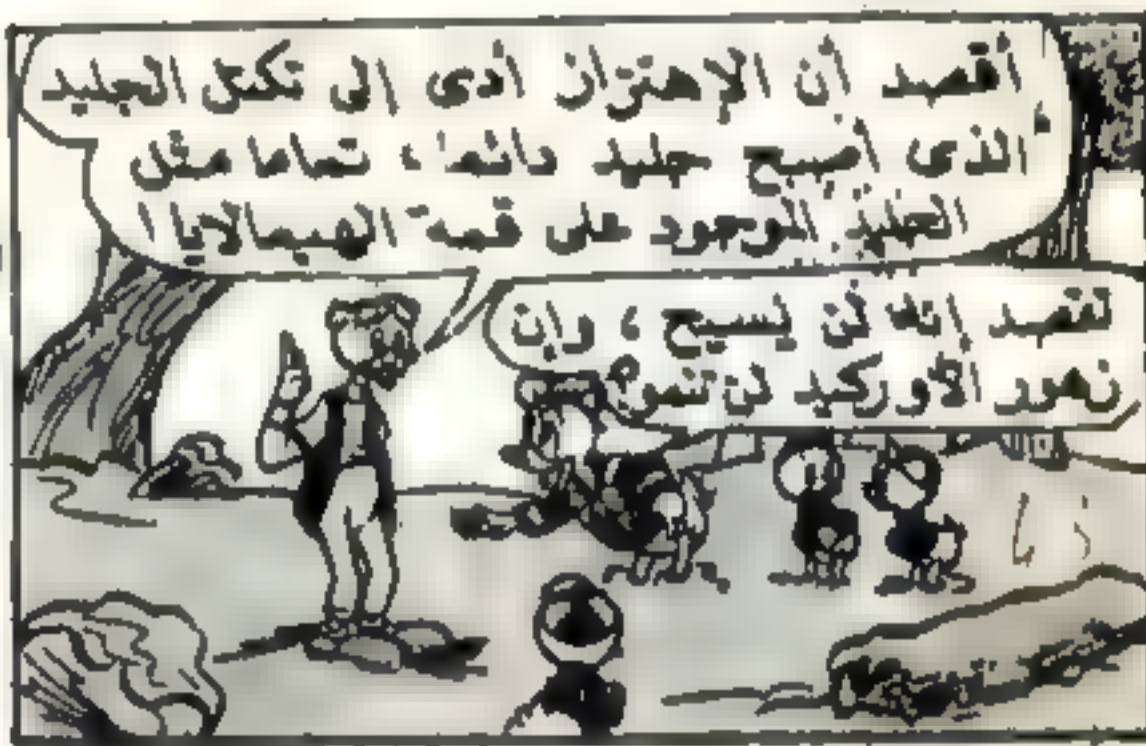 أقصد أن الإهتزاز أدى الى تكتل الجليد
الذى أصبح جليد دائما، تماما مثل
الجليد الموجود على قمة الهيمالايا !
تقصد إنه لن يسيح ، وإن
زهور الأوركيد لن تنمو ؟